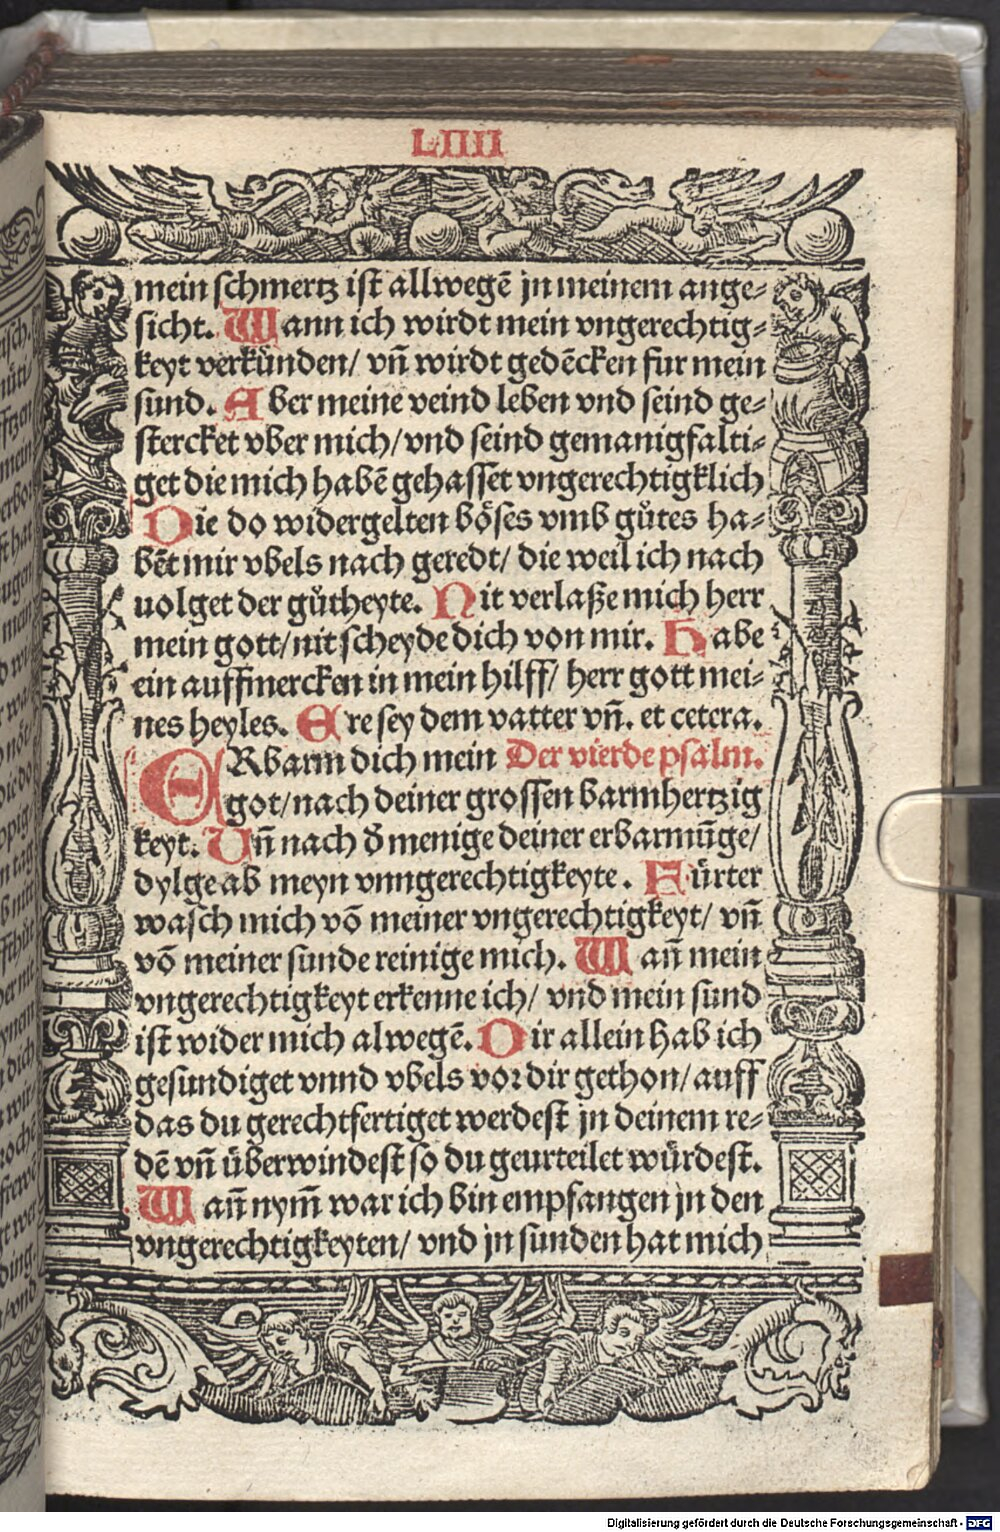 LIIII
mein schmertz ist allwegē jn meinem ange-
sicht. Wann ich wirdt mein vngerechtig-
keyt verkünden/ vñ wirdt gedēcken fur mein
sund. Aber meine veind leben vnd seind ge-
stercket vber mich/ vnd seind gemanigfalti-
get die mich habē gehasset vngerechtigklich
Die do widergelten böses vmb gůtes ha-
bēt mir vbels nach geredt/ die weil ich nach
uolget der gůtheyte. Nit verlaße mich herr
mein gott/ nit scheyde dich von mir. Habe
ein auffmercken in mein hilff/ herr gott mei-
nes heyles. Ere sey dem vatter vñ. et cetera.
ERbarm dich mein Der vierde psalm.
got/ nach deiner grossen barmhertzig
keyt. Vñ nach d̄ menige deiner erbarmūge/
dylge ab meyn vnngerechtigkeyte. Fürter
wasch mich vō meiner vngerechtigkeyt/ vñ
vō meiner sunde reinige mich. Wañ mein
vngerechtigkeyt erkenne ich/ vnd mein sund
ist wider mich alwegē. Dir allein hab ich
gesundiget vnnd vbels vor dir gethon/ auff
das du gerechtfertiget werdest jn deinem re-
dē vñ überwindest so du geurteilet würdest.
Wañ nym̄ war ich bin empfangen jn den
vngerechtigkeyten/ vnd jn sunden hat mich
Digitalisierung gefördert durch die Deutsche Forschungsgemeinschaft - DFG